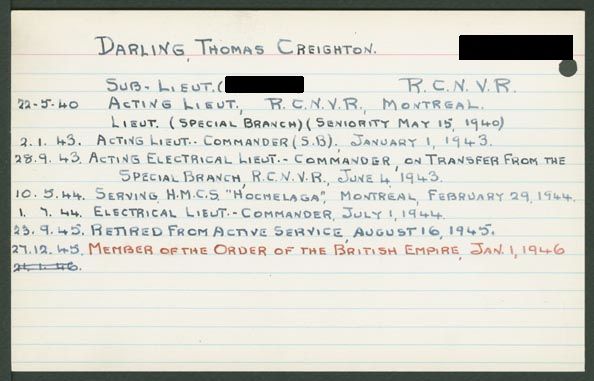 DARLING, THOMAS CREIGHTON.
SUB-LIEUT.( R.C.N.V.R.
22-5-40 ACTING LIEUT., R.C.N.V.R., MONTREAL.
LIEUT. (SPECIAL BRANCH)(SENIORITY MAY 15, 1940)
2.1.43. ACTING LIEUT.-COMMANDER (S.B), JANUARY 1, 1943.
28.9.43. ACTING ELECTRICAL LIEUT.-COMMANDER, ON TRANSFER FROM THE
SPECIAL BRANCH, R.C.N.V.R., JUNE 4, 1943.
10.5.44. SERVING H.M.C.S. "HOCHELAGA", MONTREAL, FEBRUARY 29, 1944.
1.7.44. ELECTRICAL LIEUT.-COMMANDER, JULY 1, 1944.
23.9.45. RETIRED FROM ACTIVE SERVICE, AUGUST 16, 1945.
27.12.45. MEMBER OF THE ORDER OF THE BRITISH EMPIRE, JAN. 1, 1946